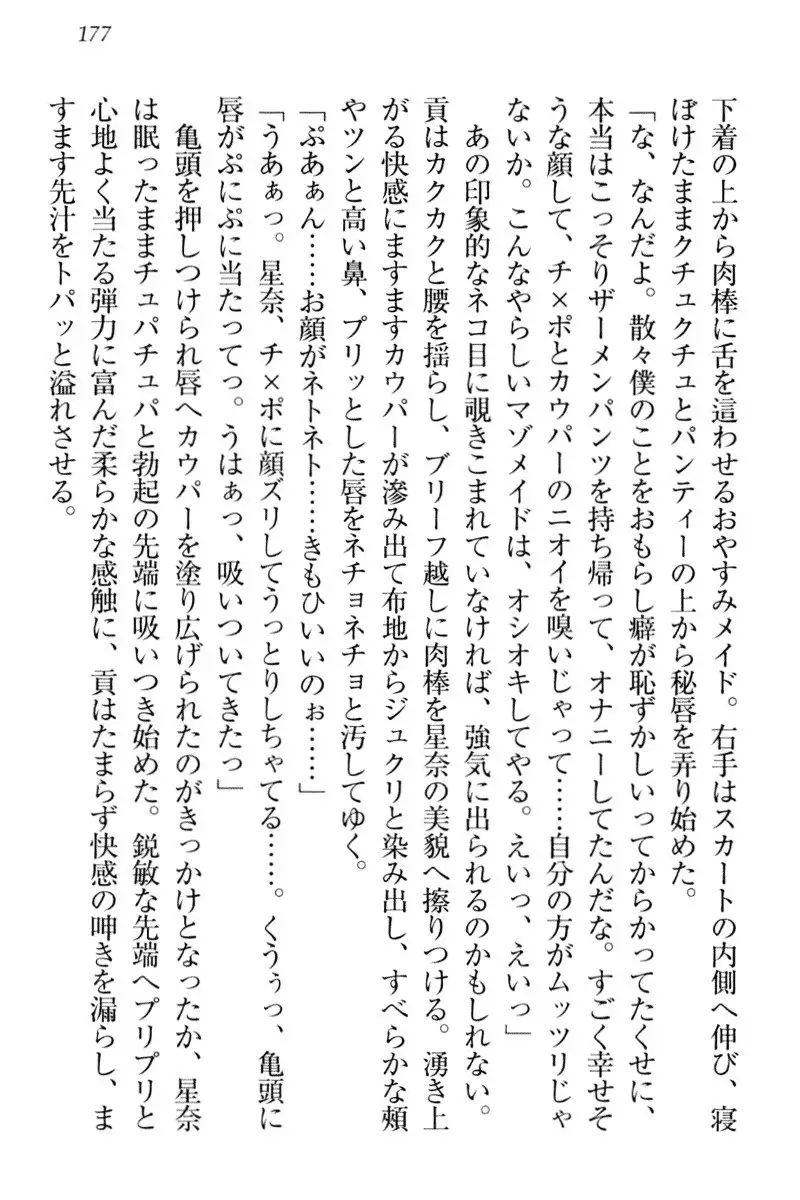 177
下着の上から肉棒に舌を這わせるおやすみメイド。右手はスカートの内側へ伸び、寝
ぼけたままクチュクチュとパンティーの上から秘唇を弄り始めた。
「な、なんだよ。散々僕のことをおもらし癖が恥ずかしいってからかってたくせに、
本当はこっそりザーメンパンツを持ち帰って、オナニーしてたんだな。すごく幸せそ
うな顔して、チ×ポとカウパーのニオイを嗅いじゃって……自分の方がムッツリじゃ
ないか。こんなやらしいマゾメイドは、オシオキしてやる。えいっ、えいっ」
あの印象的なネコ目に覗きこまれていなければ、強気に出られるのかもしれない。
貢はカクカクと腰を揺らし、ブリーフ越しに肉棒を星奈の美貌へ擦りつける。湧き上
がる快感にますますカウパーが滲み出て布地からジュクリと染み出し、すべらかな頬
やツンと高い鼻、プリッとした唇をネチョネチョと汚してゆく。
「ぷあぁん……お顔がネトネト……きもひいいのぉ……」
「うあぁっ。星奈、チ×ポに顔ズリしてうっとりしちゃてる……。くうぅっ、亀頭に
唇がぷにぷに当たってっ。うはぁっ、吸いついてきたっ」
亀頭を押しつけられ唇へカウパーを塗り広げられたのがきっかけとなったか、星奈
は眠ったままチュパチュパと勃起の先端に吸いつき始めた。鋭敏な先端へプリプリと
心地よく当たる弾力に富んだ柔らかな感触に、貢はたまらず快感の呻きを漏らし、ま
すます先汁をトパッと溢れさせる。